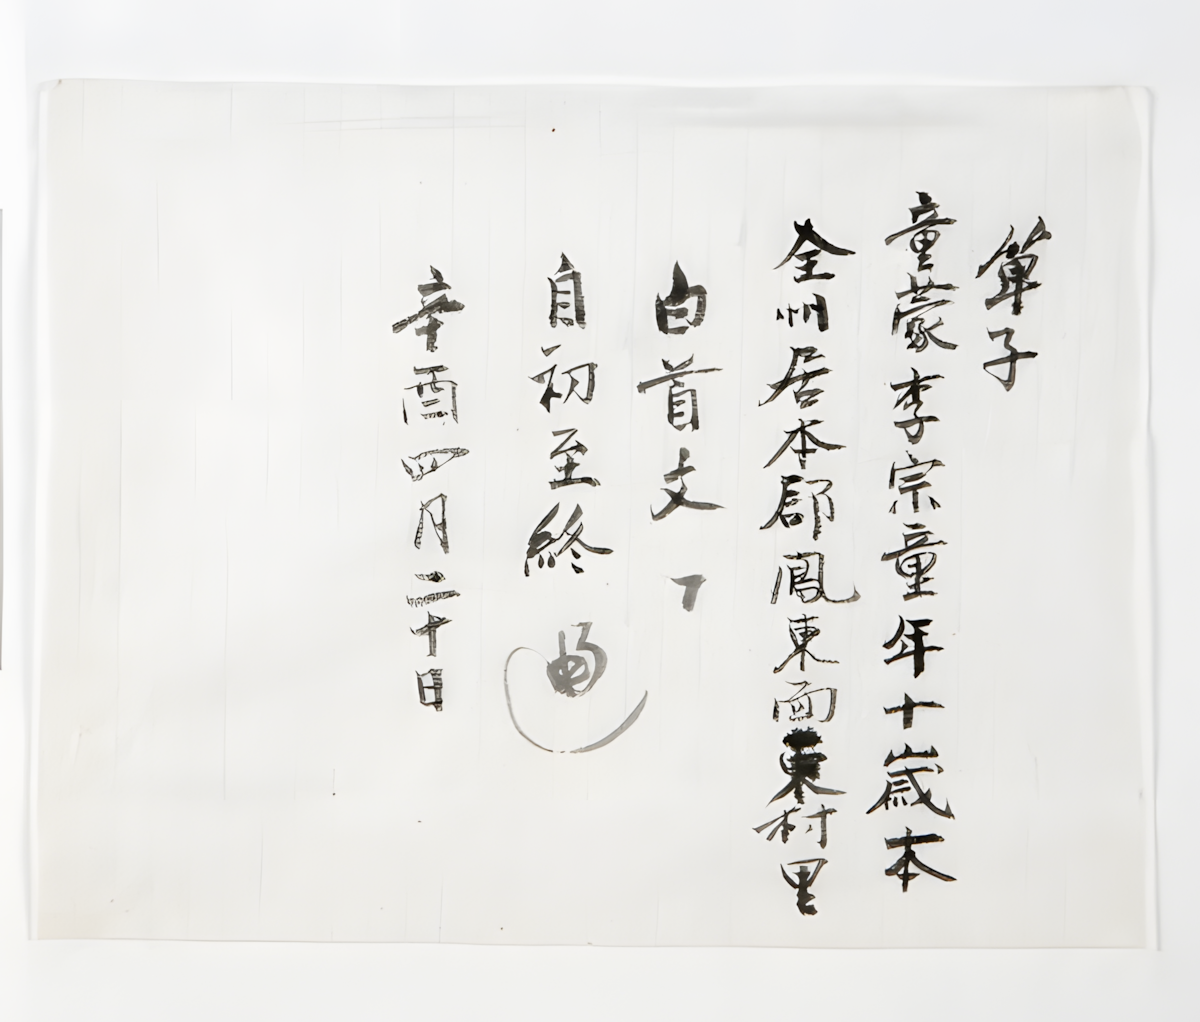 單子
童蒙李宗童年十歲本
全州居本郡鳳東面東村里
白首文
自初至終
辛酉四月二十日